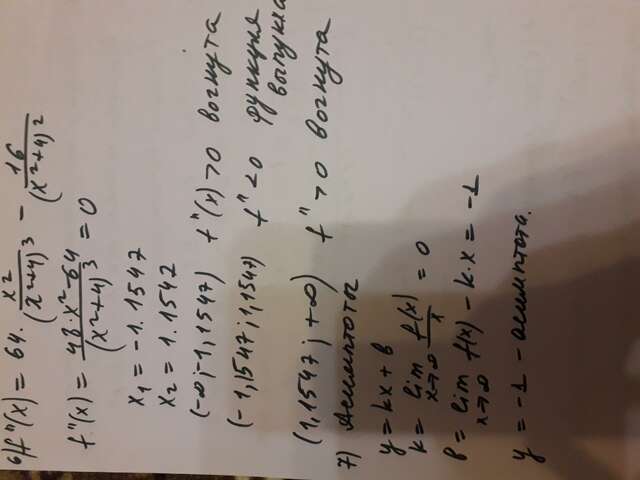 6) f''(x) = 64 · x²/(x²+4)³ − 16/(x²+4)²
f''(x) = 48·x²−64/(x²+4)³ = 0
x₁ = −1.1547
x₂ = 1.1547
(−∞;−1,1547) f''(x) > 0 вогнута
(−1,1547;1,1547) f'' < 0 функция выпукла
(1,1547; +∞) f'' > 0 вогнута
7) Асимптоты
y = kx + b
k = lim x→∞ f(x)/x = 0
b = lim x→∞ f(x) − k·x = −1
y = −1 − асимптота.